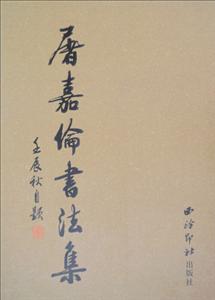 屠嘉倫書法集
壬辰秋自題
西泠印社出版社